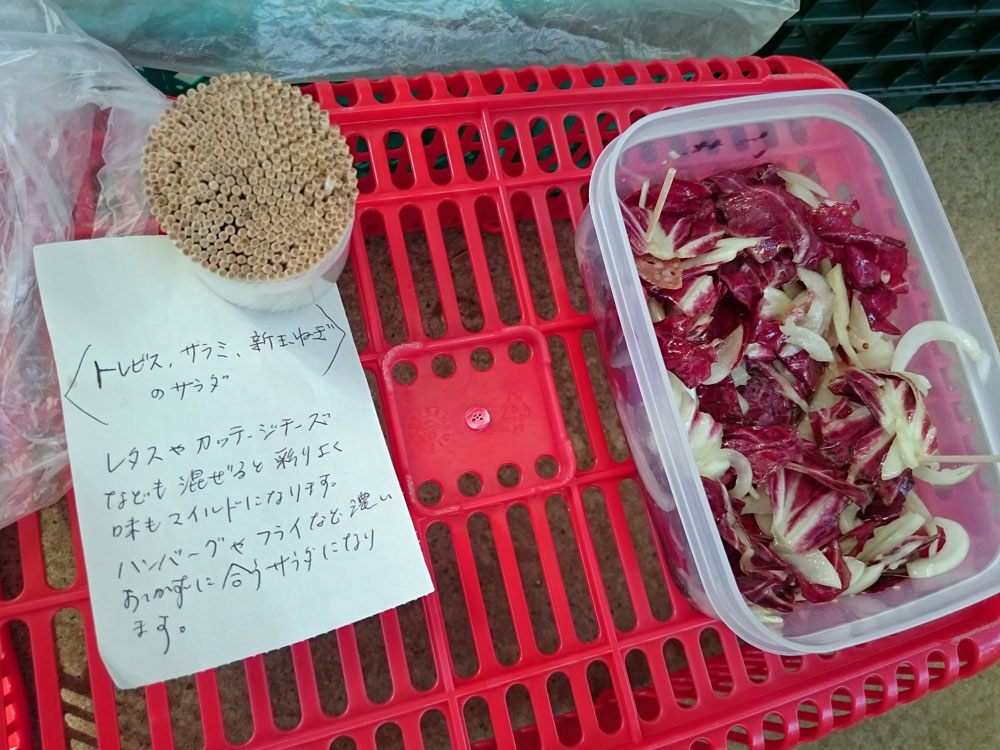 〈トレビス、サラミ、新玉ねぎ
のサラダ〉
レタスや カッテージチーズ
なども 混ぜると 彩りよく
味もマイルドになります。
ハンバーグや フライなど 濃い
おかずに 合うサラダになり
ます。